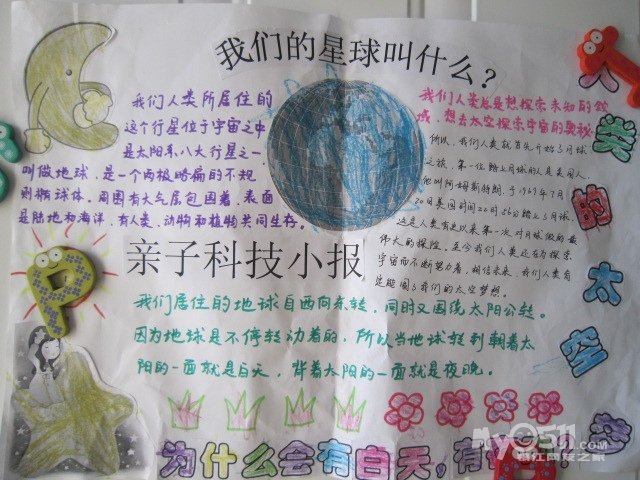 我们的星球叫什么？
我们人类所居住的
这个行星位于宇宙之中
是太阳系八大行星之一，
叫做地球，是一个两极略扁的不规
则椭球体。周围有大气层包围着，表面
是陆地和海洋，有人类、动物和植物共同生存。
我们人类总是想探索未知的领
域，想去太空探索宇宙的奥秘
所以，我们人类就首先开始了月球
之旅，第一位踏上月球的人是美国人，
他叫阿姆斯特朗，于1969年7月
20日美国时间22时56分踏上了月球
这是人类有史以来第一次对月球做的最
伟大的探险，至今我们人类还在为探索
宇宙而不断努力着，相信未来，我们人类肯
定能圆了我们的太空梦想。
人类的太空梦
亲子科技小报
我们居住的地球自西向东转，同时又围绕太阳公转。
因为地球是不停转动着的，所以当地球转到朝着太
阳的一面就是白天，背着太阳的一面就是夜晚。
为什么会有白天，有
P
My0511.com